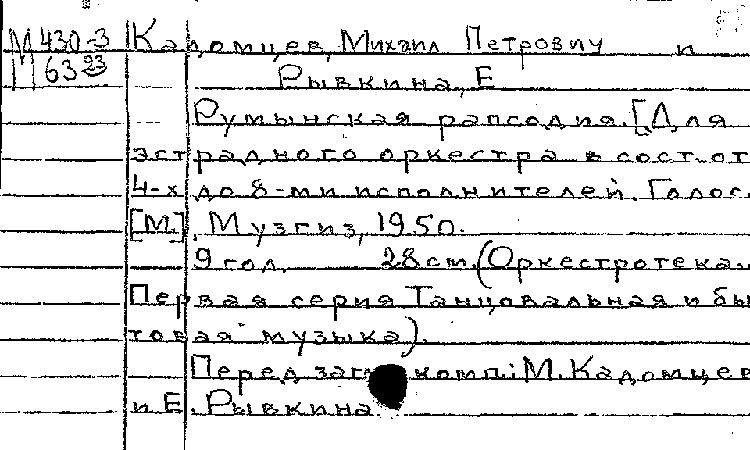 М 430-3 Кадомцев, Михаил Петрович и
М 63 23 Рывкина, Е
Румынская рапсодия. [Для
эстрадного оркестра в сост. от
4-х до 8-ми исполнителей. Голос.
[М.], Музгиз, 1950.
9 гол. 28 cm. (Оркестротека.
Первая серия Танцовальная и бы
товая музыка).
Перед загл. комп.: М. Кадомцев
и Е. Рывкина